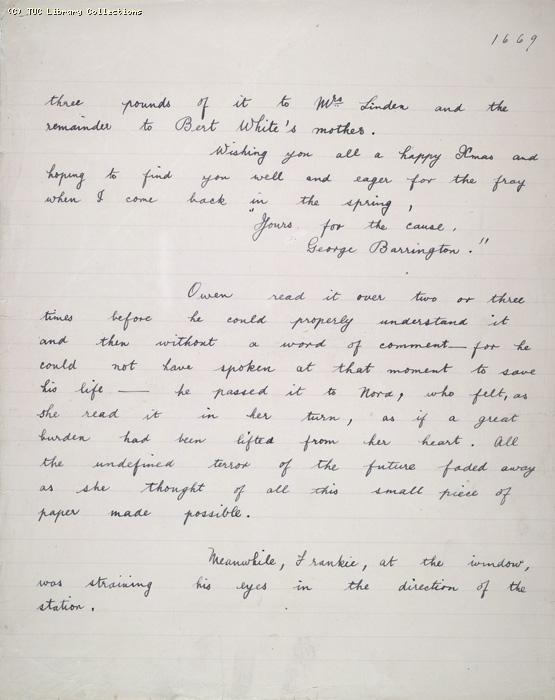 (C) TUC Library Collections
1669
three pounds of it to Mrs Linden and the
remainder to Bert White's mother.
Wishing you all a happy Xmas and
hoping to find you well and eager for the fray
when I come back in the spring,
"Yours for the cause.
George Barrington."
Owen read it over two or three
times before he could properly understand it
and then without a word of comment — for he
could not have spoken at that moment to save
his life — he passed it to Nora, who felt, as
she read it in her turn, as if a great
burden had been lifted from her heart. All
the undefined terror of the future faded away
as she thought of all this small piece of
paper made possible.
Meanwhile, Frankie, at the window,
was straining his eyes in the direction of the
station.